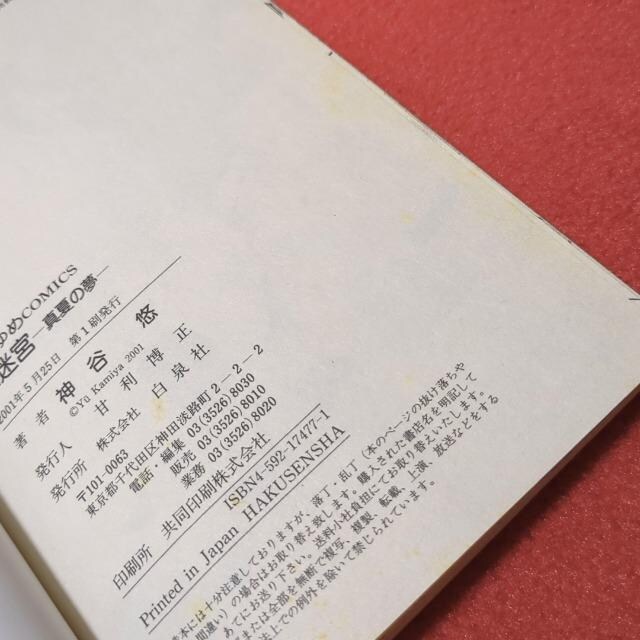 ゆめCOMICS
迷宮―真夏の夢―
2001年5月25日 第1刷発行
著者 神谷 悠
©Yu Kamiya 2001
発行人 甘利博正
発行所 株式会社 白泉社
〒101-0063
東京都千代田区神田淡路町2-2-2
電話・編集 03(3526)8030
販売 03(3526)8010
業務 03(3526)8020
印刷所 共同印刷株式会社
ISBN4-592-17477-1
Printed in Japan HAKUSENSHA
造本には十分注意しておりますが、落丁・乱丁(本のページの抜け落ちや
間違い)の場合はお取り替え致します。購入された書店名を明記して
あてにお送り下さい。送料小社負担にてお取り替えいたします。
または全部を無断で複写、複製、転載、上演、放送などをする
法上での例外を除いて禁じられています。